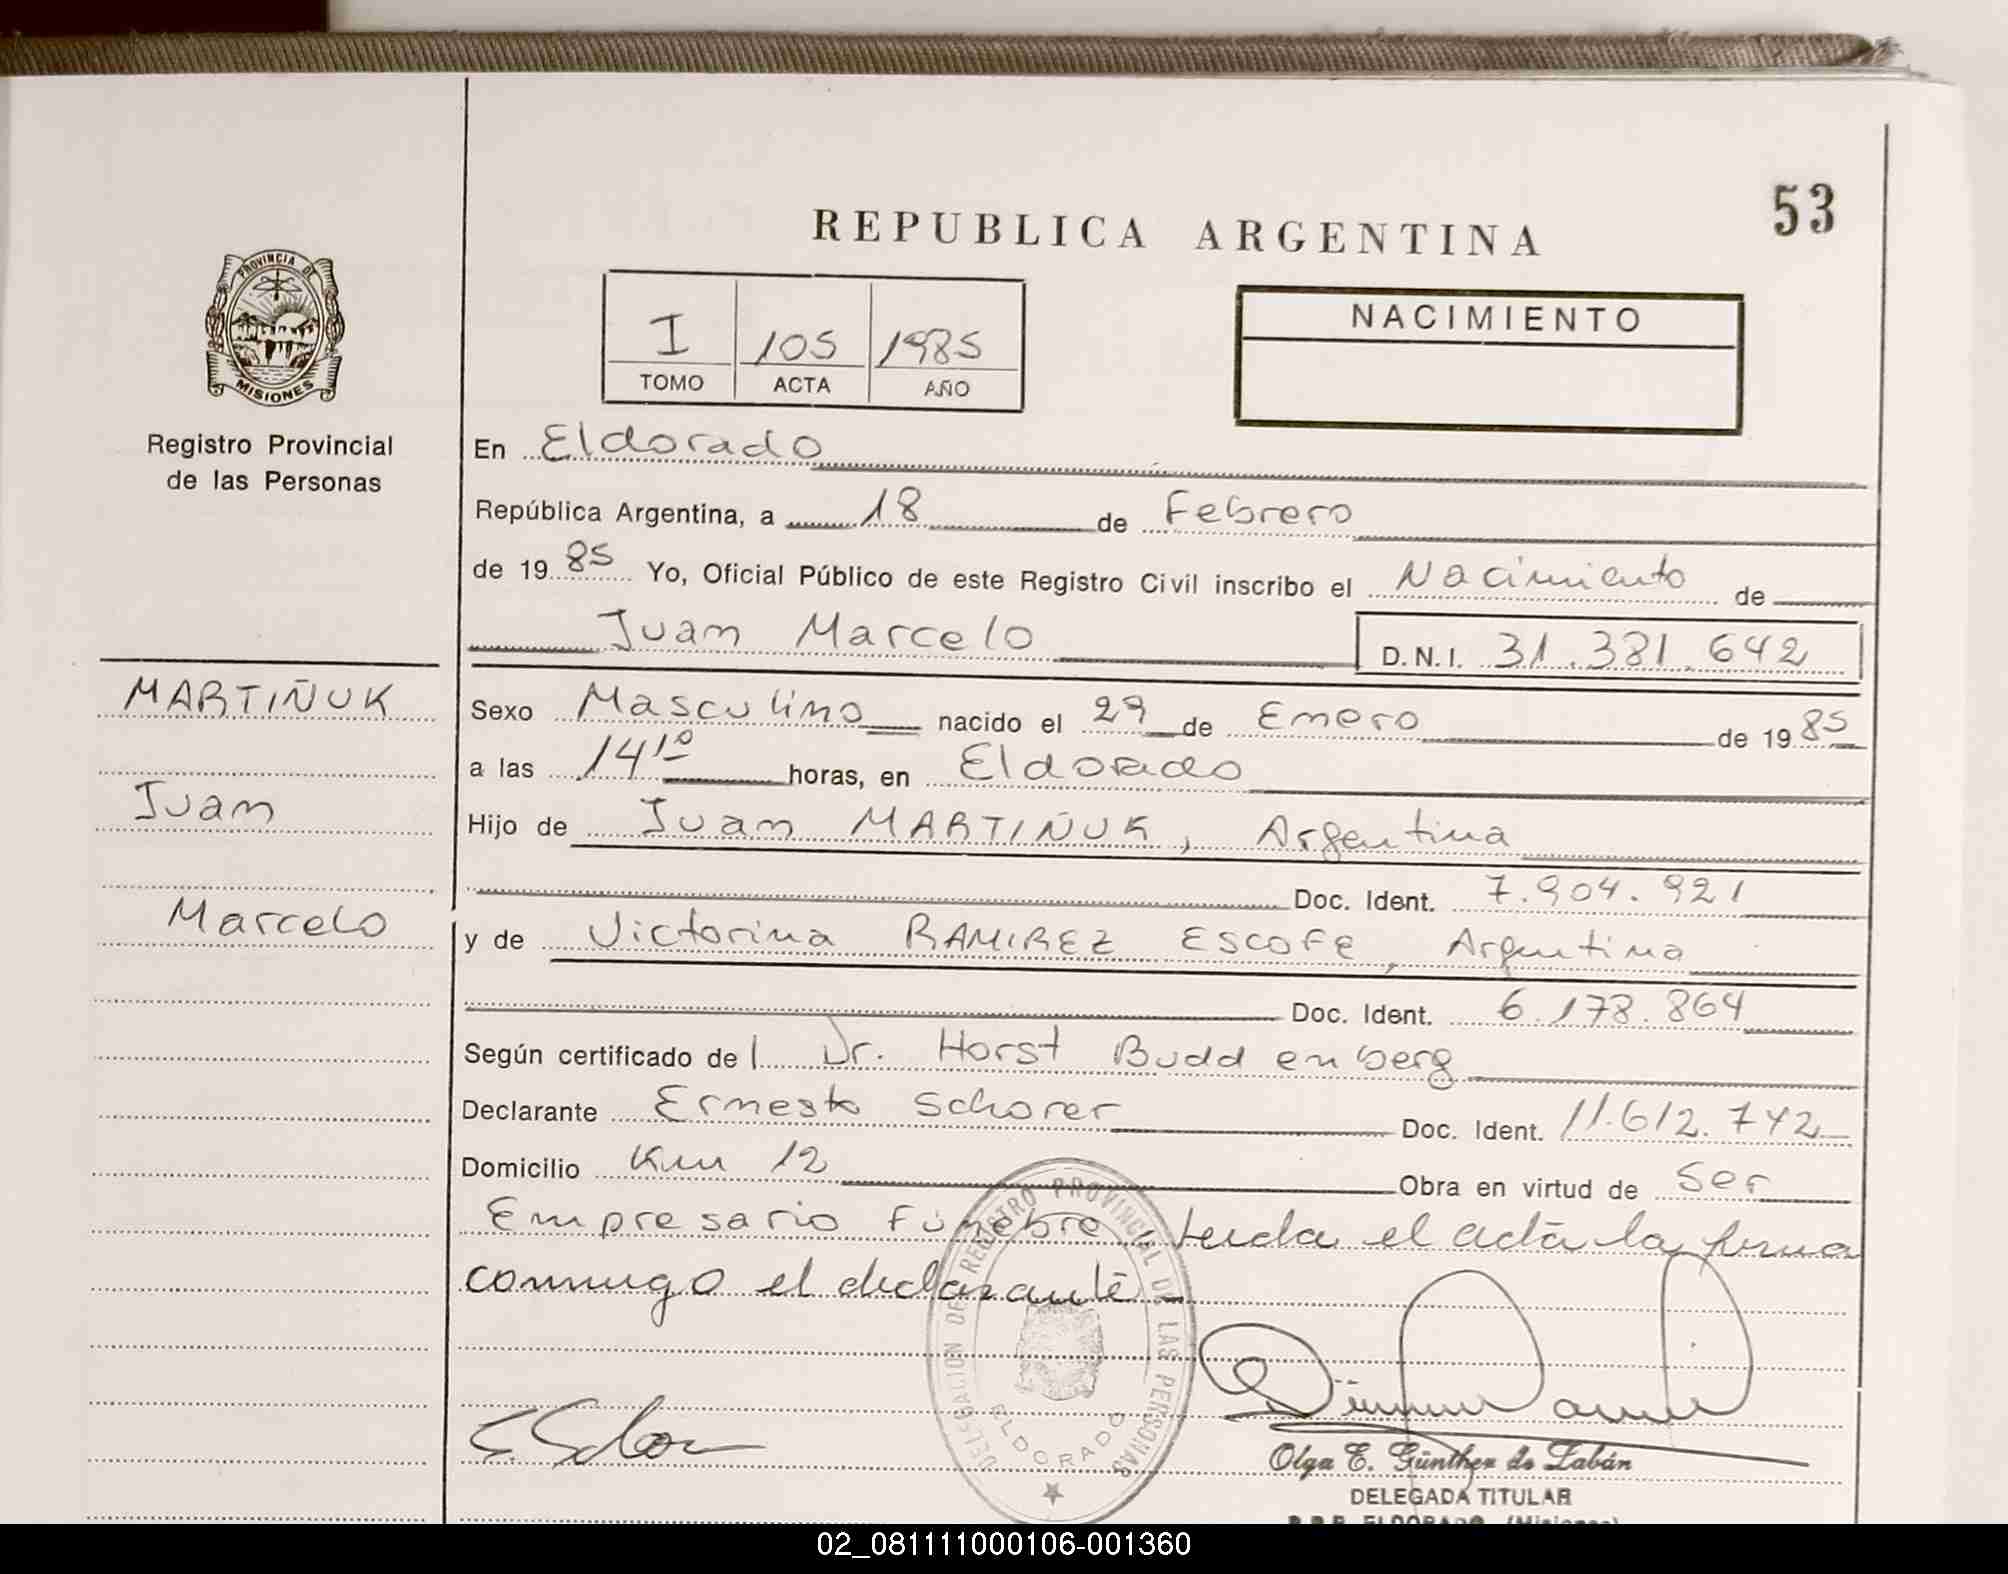 53
REPUBLICA ARGENTINA
PROVINCIA DE MISIONES
I 105 1985
TOMO ACTA AÑO
NACIMIENTO
Registro Provincial
de las Personas
En Eldorado
República Argentina, a 18 de Febrero
de 1985 Yo, Oficial Público de este Registro Civil inscribo el Nacimiento de
Juan Marcelo D.N.I. 31.381.642
MARTIÑUK
Juan
Marcelo
Sexo Masculino nacido el 29 de Enero de 1985
a las 14,10 horas, en Eldorado
Hijo de Juan MARTIÑUK, Argentina
Doc. Ident. 7.904.921
y de Victorina RAMIREZ ESCOFE, Argentina
Doc. Ident. 6.178.864
Según certificado del Dr. Horst Buddenberg
Declarante Ernesto Schorer Doc. Ident. 11.612.742
Domicilio Km 12 Obra en virtud de ser
Empresario Fúnebre, leída el acta la firma
conmigo el declarante
DELEGACION DEL REGISTRO PROVINCIAL DE LAS PERSONAS
ELDORADO
Olga E. Günther de Labán
DELEGADA TITULAR
R.P.P. ELDORADO (Misiones)
02_081111000106-001360